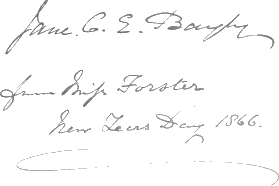 Jane. C. E. Bayly
from Miss Forster
New Years Day 1866.